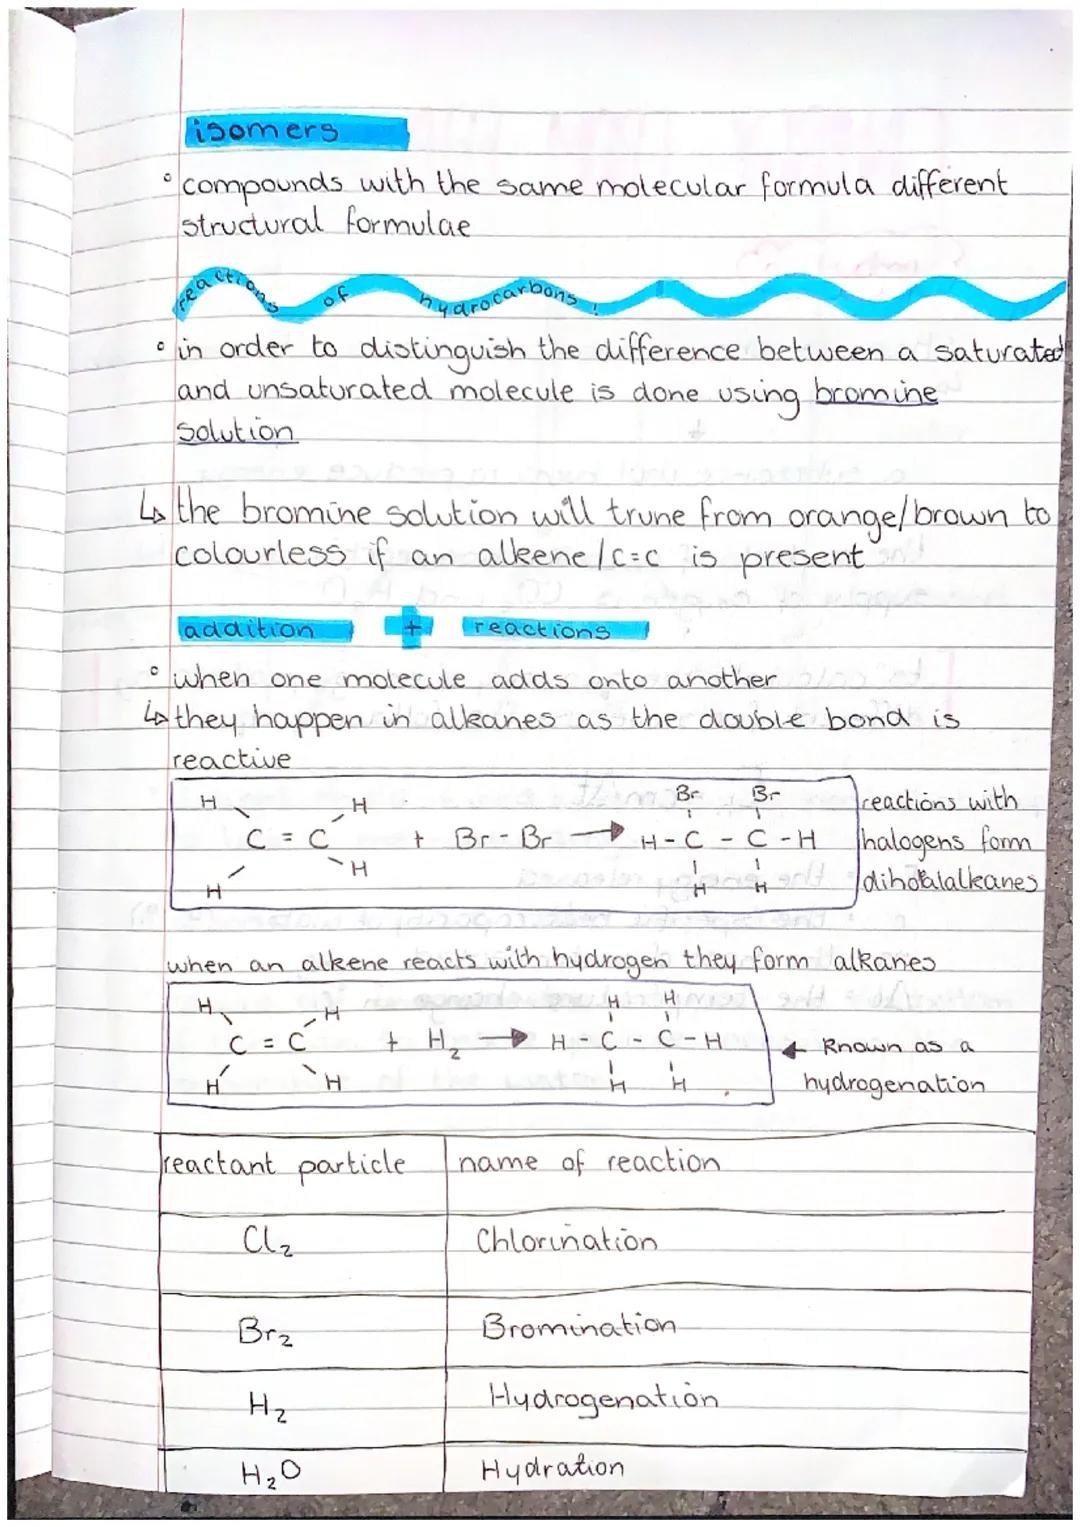 isomers
° compounds with the same molecular formula different
structural formulae
reactions of hydrocarbons!
° in order to distinguish the difference between a saturated
and unsaturated molecule is done using bromine
solution
↳ the bromine solution will trune from orange/brown to
colourless if an alkeene/c=c is present
addition + reactions
° when one molecule adds onto another
↳ they happen in alkanes as the double bond is
reactive
H H Br Br
C = C + Br - Br → H - C - C - H
H H H H
reactions with
halogens form
dihalalkanes
when an alkene reacts with hydrogen they form alkanes
H H H H
C = C + H₂ → H - C - C - H
H H H H
← Known as a
hydrogenation
reactant particle name of reaction
Cl₂ Chlorination
Br₂ Bromination
H₂ Hydrogenation
H₂O Hydration